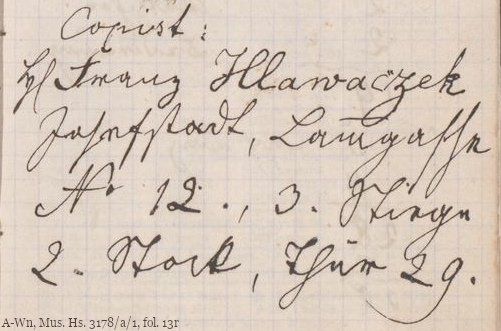 Copist:
H Franz Hlawaczek
Josefstadt, Lam̄gasse
No 12., 3. Stiege
2. Stock, Thür 29.
A-Wn, Mus. Hs. 3178/a/1, fol. 13r